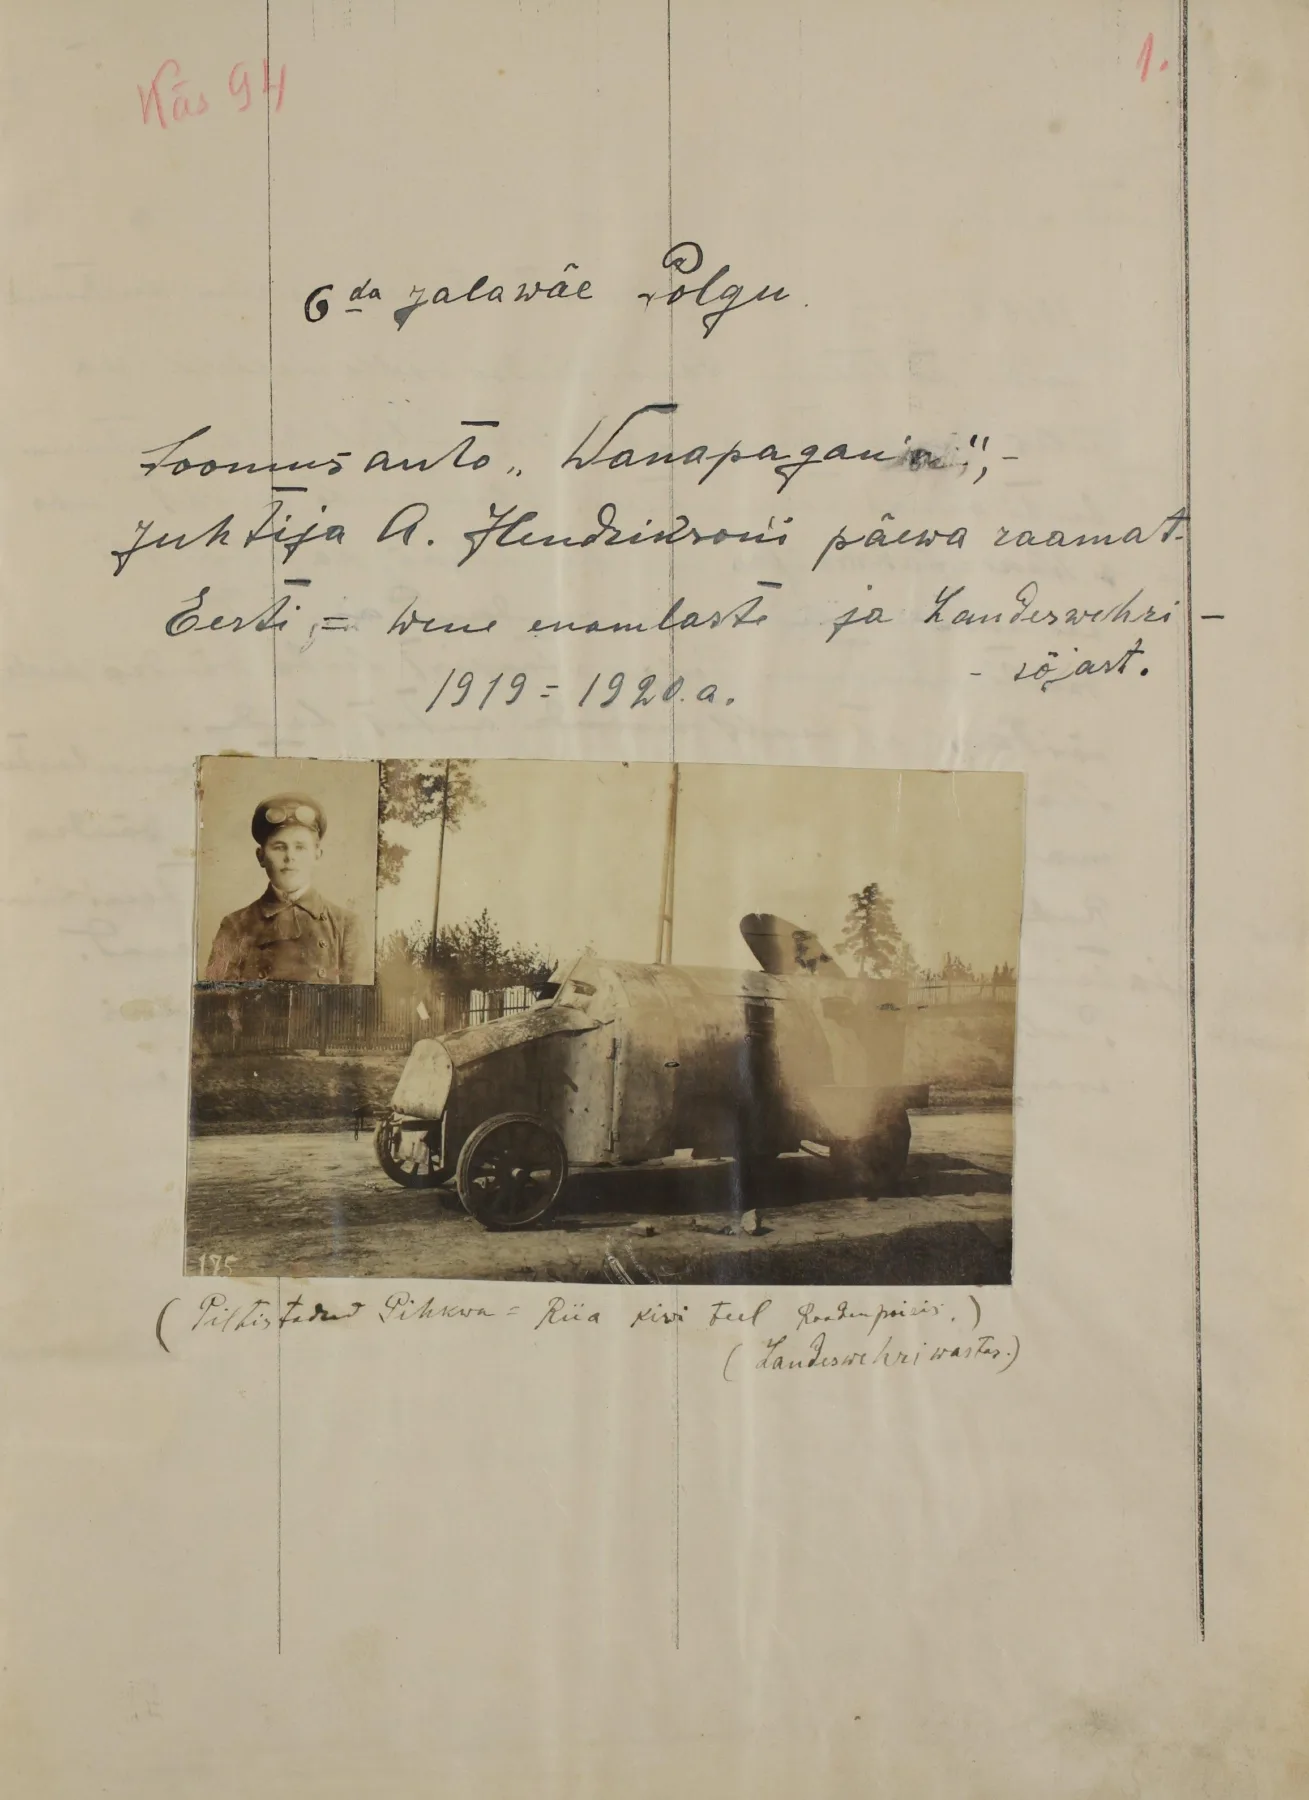 Käs 94
1.
6da jalawäe Polgu.
Soomusauto „Wanapagan'i",-
Juhtija A. Hendriksoni päewa raamat.
Eesti = wene enamlaste ja Landeswehri -
- sõjast.
1919 = 1920.a.
175
(Piltistadud Pihkwa = Riia kiwi teel Rodenpoisis.)
(Landeswehri wastas.)